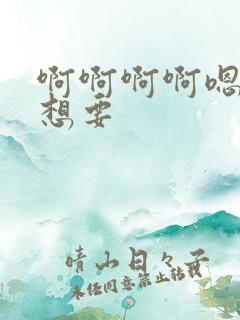 啊啊啊啊嗯
想要
晴山日々子
未经同意禁止转载